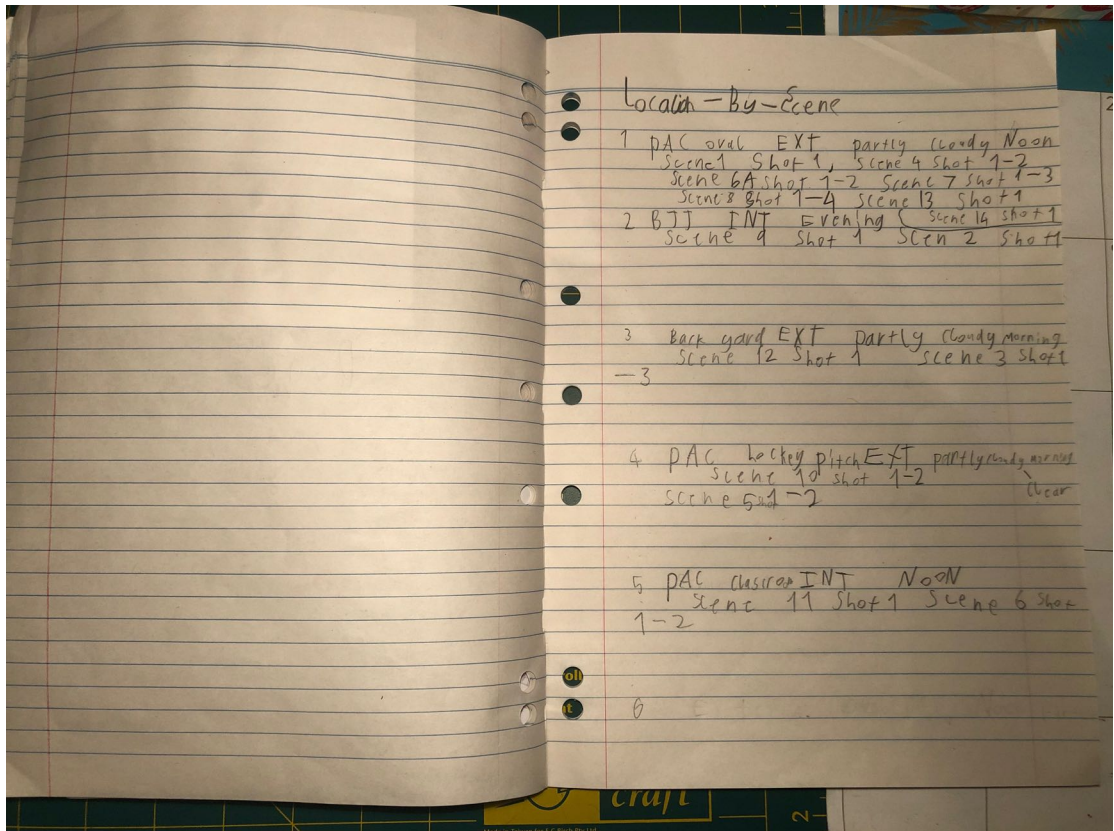 Location - By - Scene
1 PAC oval EXT partly cloudy Noon
Scene1 Shot 1, Scene 4 Shot 1-2
Scene 6A shot 1-2 Scene 7 Shot 1-3
Scene 8 Shot 1-4 Scene 13 Shot 1
Scene 14 shot 1
2 BJJ INT Evening
Scene 9 Shot 1 Scen 2 Shot 1
3 Back yard EXT partly cloudy Morning
Scene 12 Shot 1 Scene 3 Shot 1
-3
4 PAC hockey pitch EXT partly cloudy morning
Scene 10 shot 1-2
clear
Scene 5 shot 1-2
5 PAC INT NOON
Scene 11 Shot 1 Scene 6 Shot
1-2
6
oll
it
craft
2
2